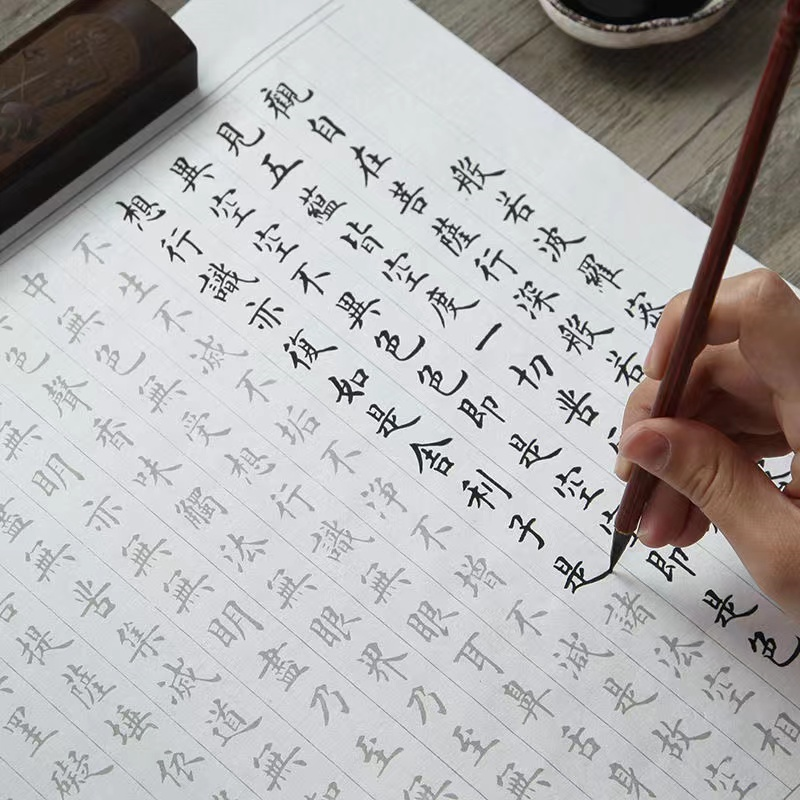 般若波羅密
觀自在菩薩行深般若
見五蘊皆空度一切苦
異空空不異色色即是空空即是色
想行識亦復如是舍利子是諸法空相
不生不滅不垢不淨不增不減是故空
中無色無受想行識無眼耳鼻舌身
色聲香味觸法無眼界乃至無
無明亦無無明盡乃至無
盡無苦集滅道無
提薩埵依
罣礙